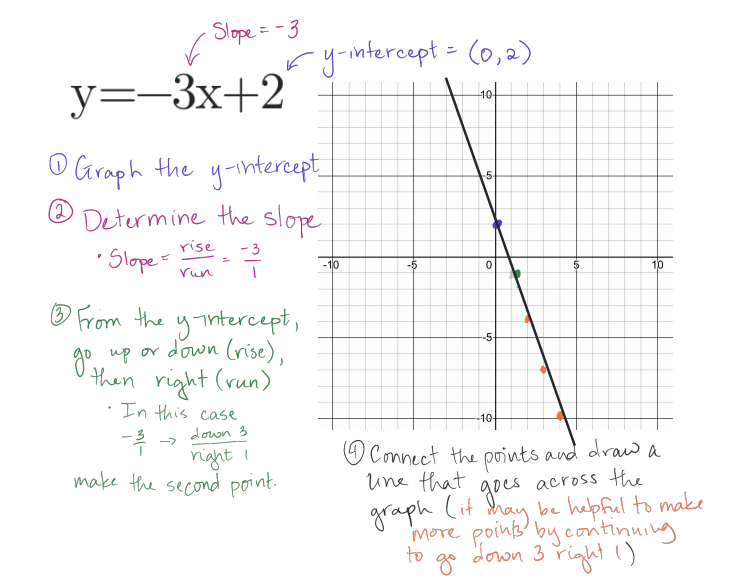 Slope = -3
y-intercept = (0,2)
y=−3x+2
① Graph the y-intercept
② Determine the slope
· Slope = rise/run = -3/1
③ From the y-intercept,
go up or down (rise),
then right (run)
· In this case
-3/1 → down 3/right 1
make the second point.
10
5
-10
-5
0
5
10
-5
-10
④ Connect the points and draw a
line that goes across the
graph (it may be helpful to make
more points by continuing
to go down 3 right 1)